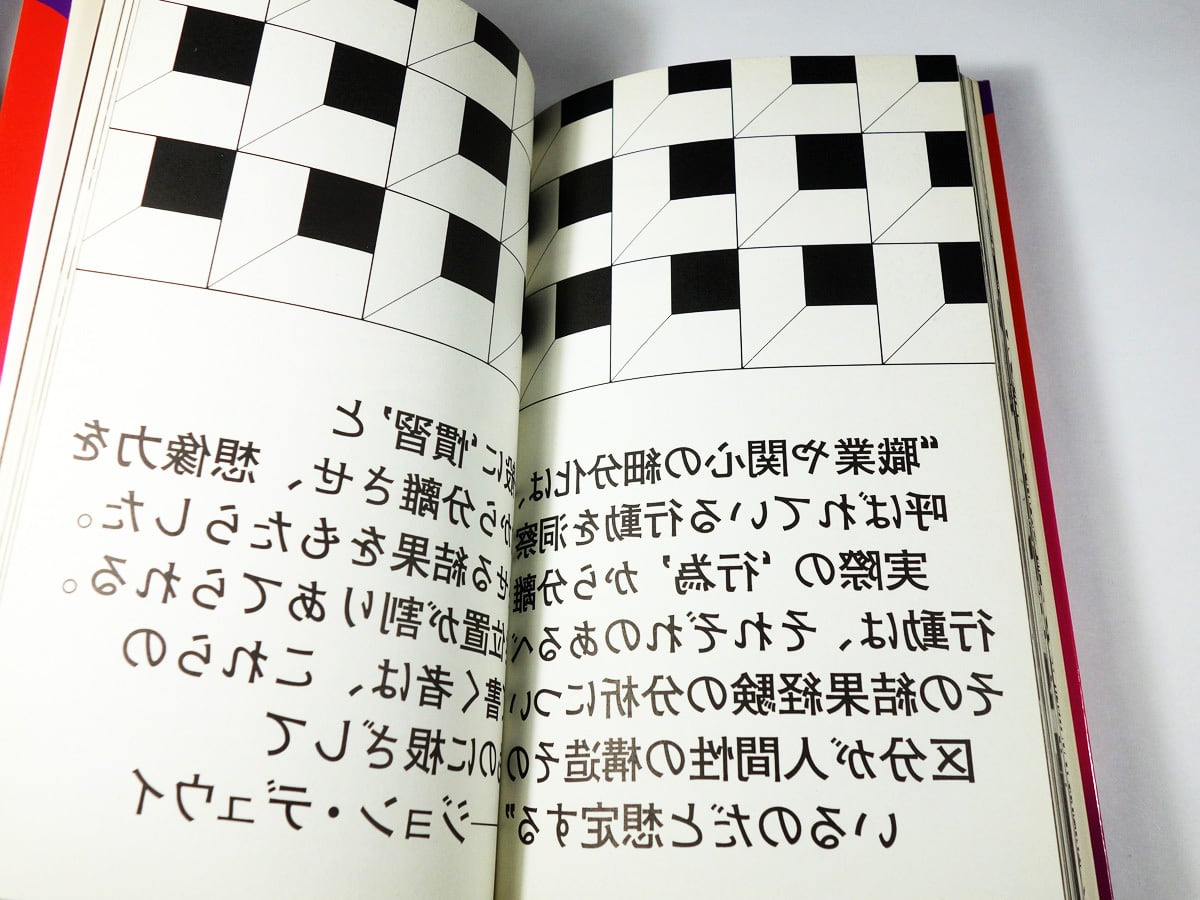 “職業や関心の細分化は、般に‘慣習’と
呼ばれている行動を洞察から分離させ、想像力を
実際の‘行為’から分離せる結果をもたらした。
行動は、それぞれのあるべ位置が割りあてられる。
その結果経験の分析につい書く者は、これらの
区分が人間性の構造そのものに根ざして
いるのだと想定する”—ジョン・デュウィ